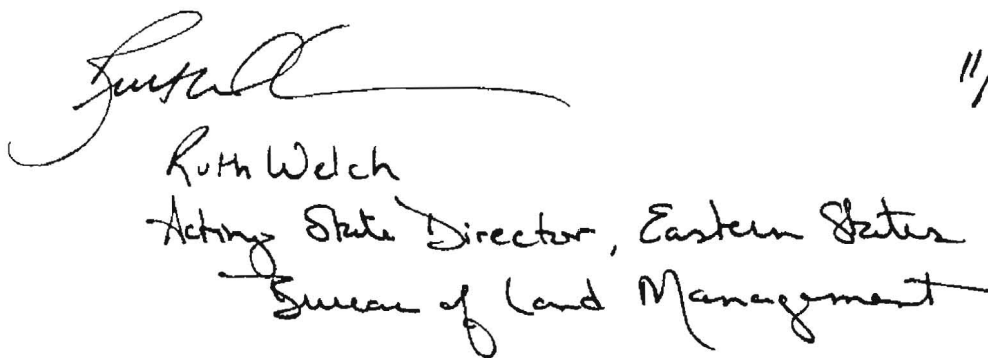 11/
Ruth Welch
Acting State Director, Eastern States
Bureau of Land Management